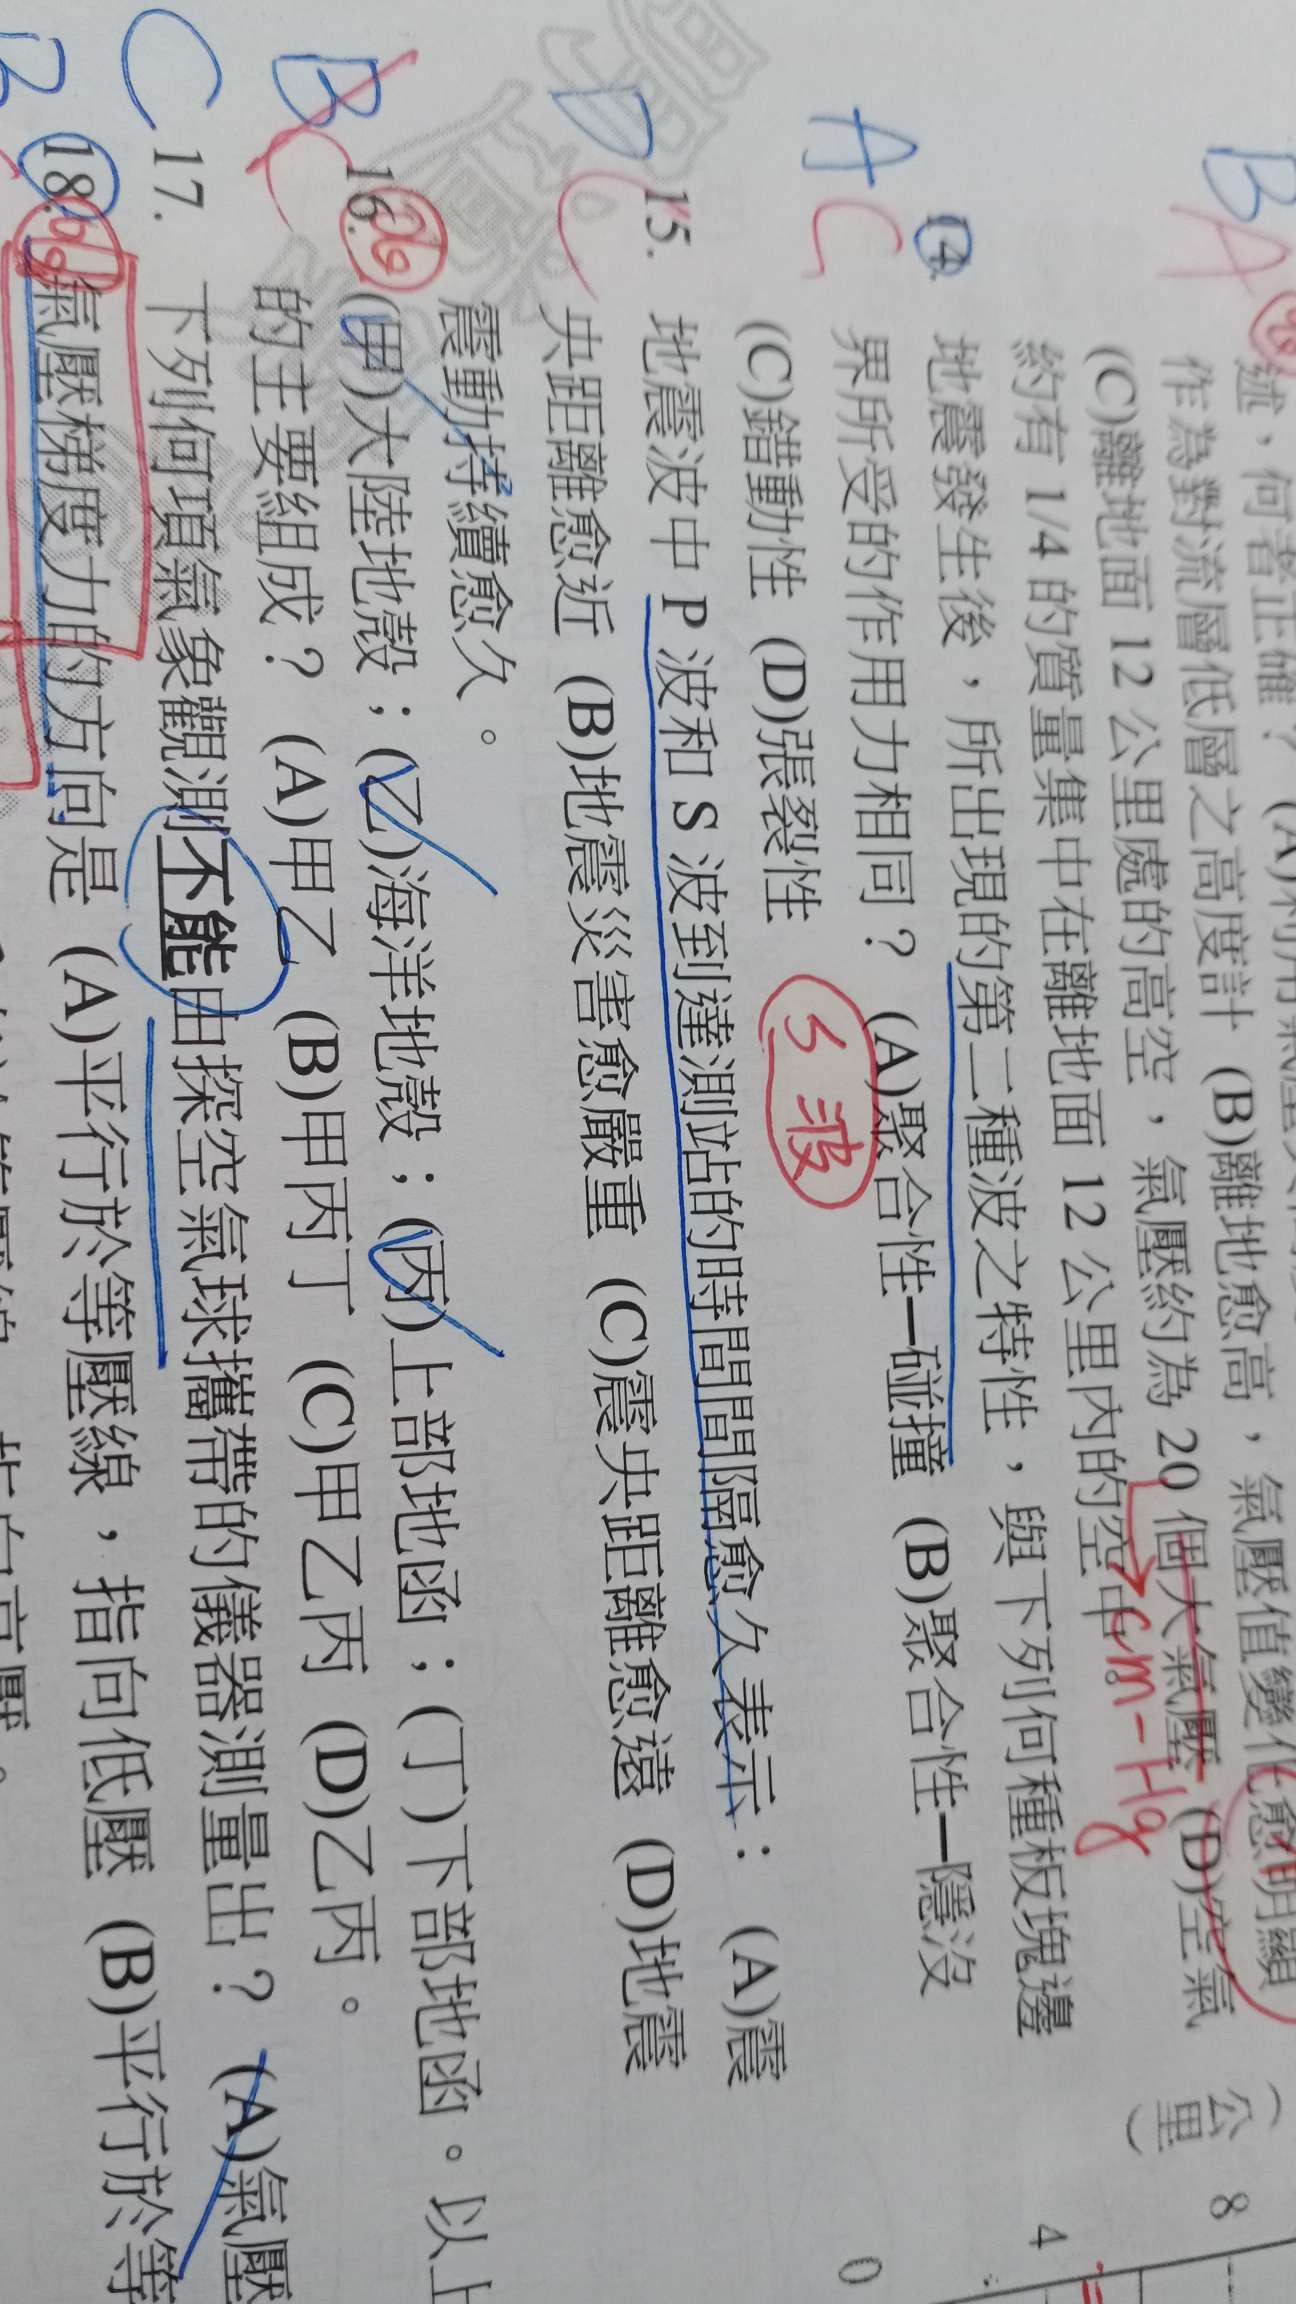 述，何者正確？
作為對流層低層之高度計 (B)離地愈高，氣壓值變化愈明顯
(C)離地面 12 公里處的高空，氣壓約為 20 個大氣壓 (D)空氣
約有 1/4 的質量集中在離地面 12 公里內的空中。
cm-Hg
B
A
A
C
14.
地震發生後，所出現的第二種波之特性，與下列何種板塊邊
界所受的作用力相同？ (A)聚合性—碰撞 (B)聚合性—隱沒
(C)錯動性 (D)張裂性
S 波
D
C
15.
地震波中 P 波和 S 波到達測站的時間間隔愈久表示： (A)震
央距離愈近 (B)地震災害愈嚴重 (C)震央距離愈遠 (D)地震
震動持續愈久。
B
C
16.
(甲)大陸地殼；(乙)海洋地殼；(丙)上部地函；(丁)下部地函。以上
的主要組成？ (A)甲乙 (B)甲丙丁 (C)甲乙丙 (D)乙丙。
C
17.
下列何項氣象觀測不能由探空氣球攜帶的儀器測量出？ (A)氣壓
B
18.
氣壓梯度力的方向是 (A)平行於等壓線，指向低壓 (B)平行於等
（公里）
8
4
0